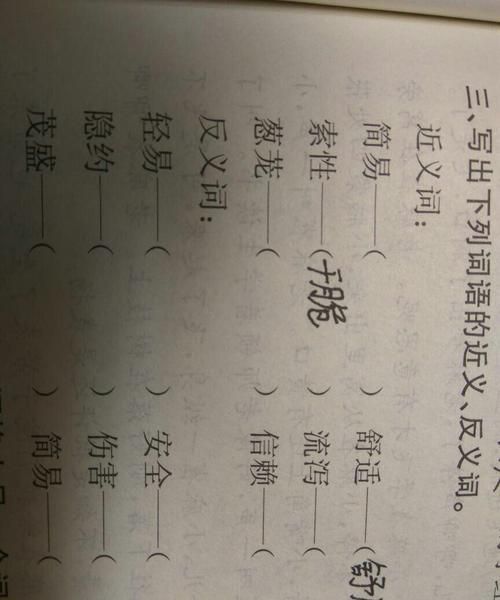 三、写出下列词语的近义、反义词。
近义词：
简易——（ ） 舒适——（舒
索性——（干脆 ） 流泻——（
葱茏——（ ） 信赖——（
反义词：
轻易——（ ） 安全——（
隐约——（ ） 伤害——（
茂盛——（ ） 简易——（